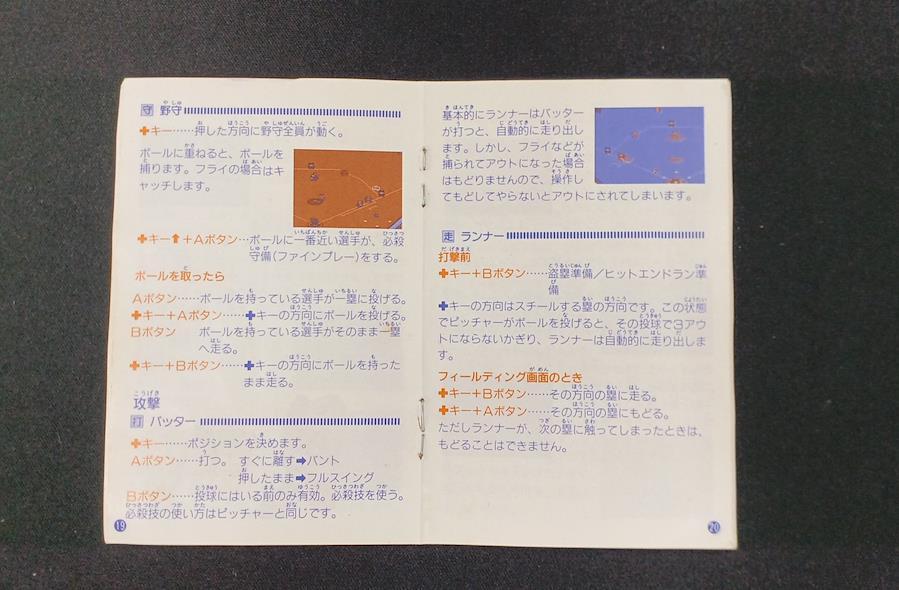 守 野守
✚キー……押した方向に野守全員が動く。
ボールに重ねると、ボールを
捕ります。フライの場合はキ
ャッチします。
✚キー⬆+Aボタン…ボールに一番近い選手が、必殺
守備(ファインプレー)をする。
ボールを取ったら
Aボタン……ボールを持っている選手が一塁に投げる。
✚キー+Aボタン……✚キーの方向にボールを投げる。
Bボタン ボールを持っている選手がそのまま一塁
へ走る。
✚キー+Bボタン……✚キーの方向にボールを持った
まま走る。
攻撃
打 バッター
✚キー……ポジションを決めます。
Aボタン……打つ。 すぐに離す➡バント
押したまま➡フルスイング
Bボタン……投球にはいる前のみ有効。必殺技を使う。
必殺技の使い方はピッチャーと同じです。
19
基本的にランナーはバッター
が打つと、自動的に走り出し
ます。しかし、フライなどが
捕られてアウトになった場合
はもどりませんので、操作し
てもどしてやらないとアウトにされてしまいます。
走 ランナー
打撃前
✚キー+Bボタン……盗塁準備/ヒットエンドラン準
備
✚キーの方向はスチールする塁の方向です。この状態
でピッチャーがボールを投げると、その投球で3アウ
トにならないかぎり、ランナーは自動的に走り出しま
す。
フィールディング画面のとき
✚キー+Bボタン……その方向の塁に走る。
✚キー+Aボタン……その方向の塁にもどる。
ただしランナーが、次の塁に触ってしまったときは、
もどることはできません。
20